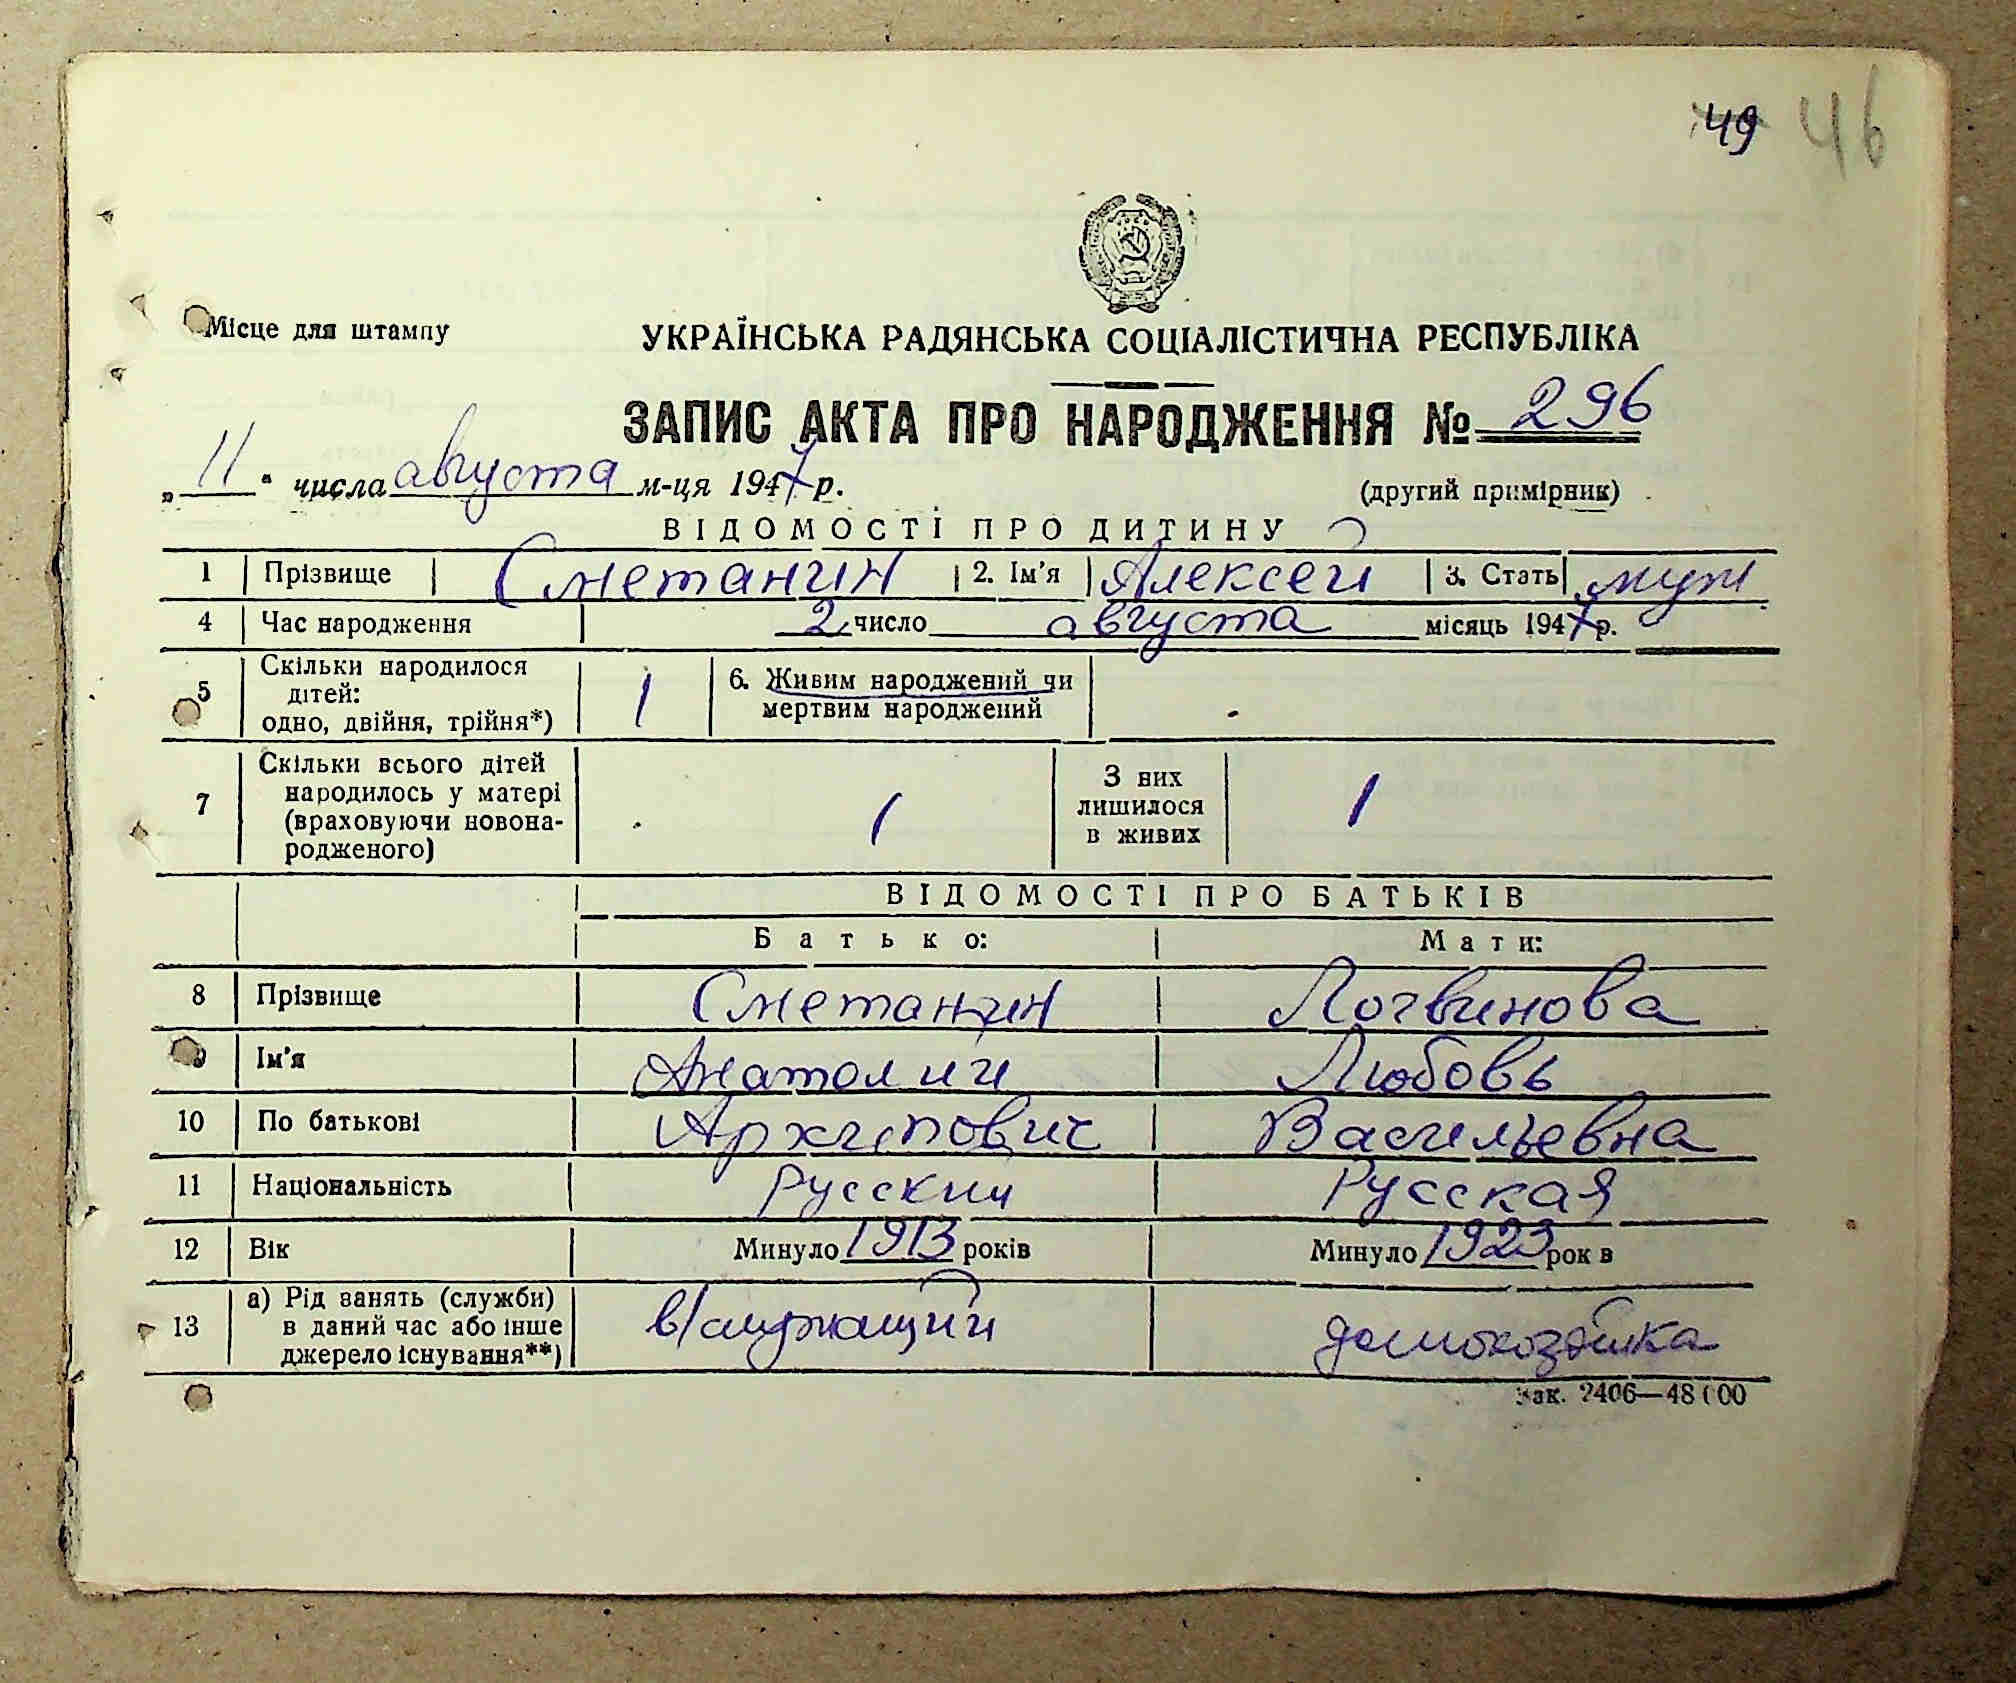 49 46
Місце для штампу
УКРАЇНСЬКА РАДЯНСЬКА СОЦІАЛІСТИЧНА РЕСПУБЛІКА
ЗАПИС АКТА ПРО НАРОДЖЕННЯ № 296
„11“ числа августа м-ця 1947 р.
(другий примірник)
ВІДОМОСТІ ПРО ДИТИНУ
1 Прізвище Сметанин 2. Ім'я Алексей 3. Стать муж
4 Час народження 2 число августа місяць 1947 р.
5 Скільки народилося дітей: одно, двійня, трійня*) 1 6. Живим народжений чи мертвим народжений
7 Скільки всього дітей народилось у матері (враховуючи новонародженого) 1 З них лишилося в живих 1
ВІДОМОСТІ ПРО БАТЬКІВ
Батько: Мати:
8 Прізвище Сметанин Логвинова
9 Ім'я Анатолий Любовь
10 По батькові Архипович Васильевна
11 Національність Русский Русская
12 Вік Минуло 1913 років Минуло 1923 рок в
13 а) Рід занять (служби) в даний час або інше джерело існування**) в/служащий домохозяйка
Зак. 2406—48000